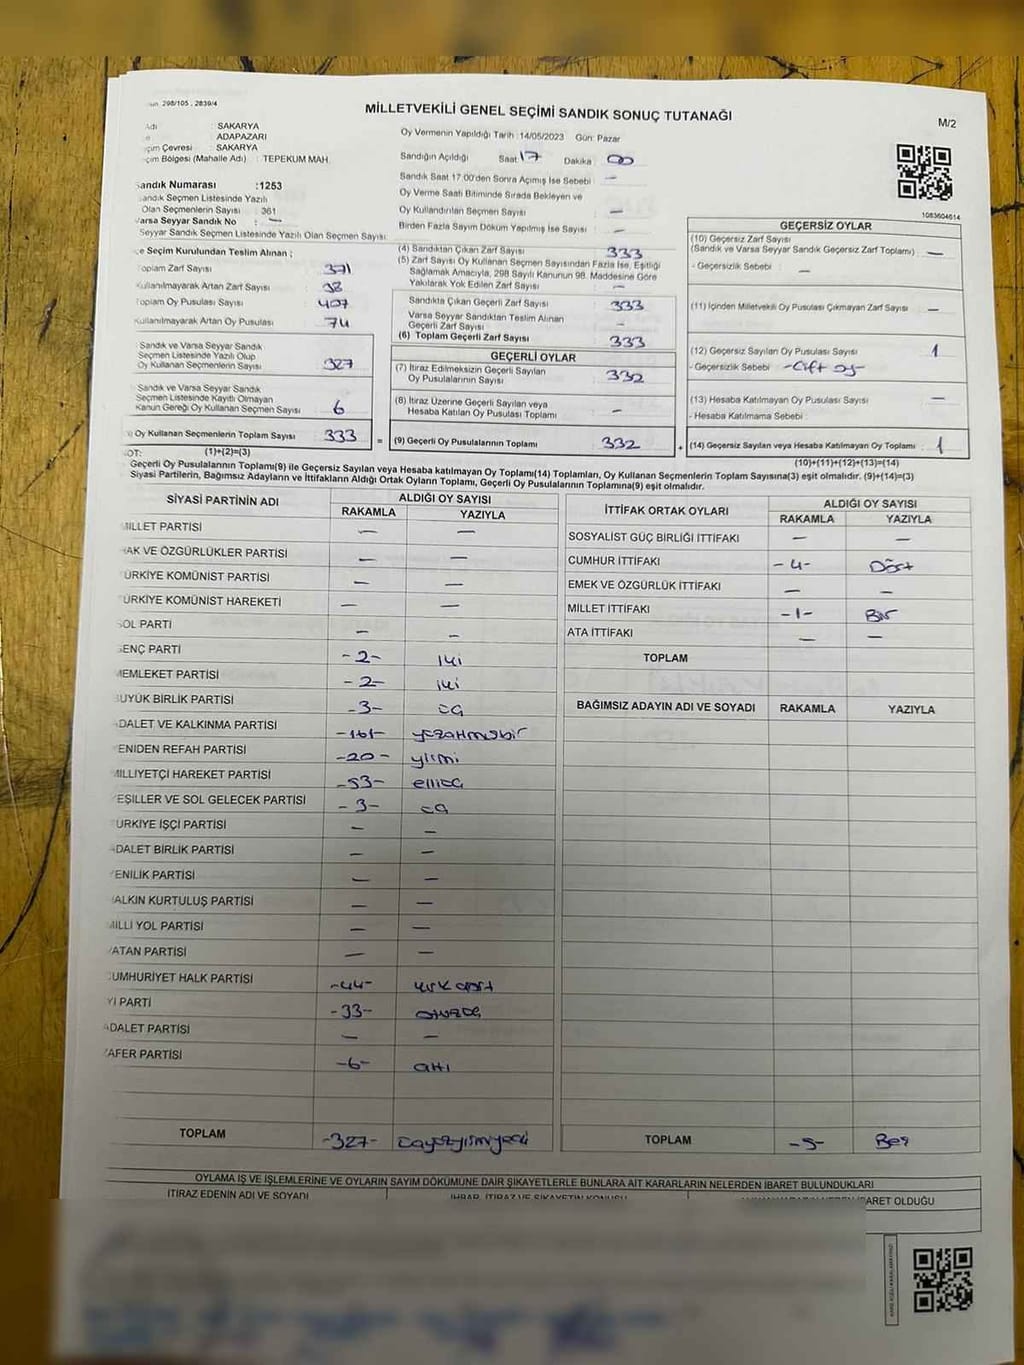 298/105 . 2839/4
MİLLETVEKİLİ GENEL SEÇİMİ SANDIK SONUÇ TUTANAĞI
M/2
: SAKARYA
ADAPAZARI
Çevresi : SAKARYA
Bölgesi (Mahalle Adı) : TEPEKUM MAH.
Oy Vermenin Yapıldığı Tarih :14/05/2023 Gün: Pazar
Sandığın Açıldığı Saat 17 Dakika 00
Sandık Saat 17:00'den Sonra Açımış İse Sebebi : –
Oy Verme Saati Bitiminde Sırada Bekleyen ve
Oy Kullandırılan Seçmen Sayısı : –
Birden Fazla Sayım Döküm Yapılmış İse Sayısı : –
Sandık Numarası :1253
Sandık Seçmen Listesinde Yazılı
Olan Seçmenlerin Sayısı : 361
Varsa Seyyar Sandık No : –
Seyyar Sandık Seçmen Listesinde Yazılı Olan Seçmen Sayısı:
1083604614
Seçim Kurulundan Teslim Alınan ;
Toplam Zarf Sayısı 371
Kullanılmayarak Artan Zarf Sayısı 38
Toplam Oy Pusulası Sayısı 407
Kullanılmayarak Artan Oy Pusulası 74
Sandık ve Varsa Seyyar Sandık
Seçmen Listesinde Yazılı Olup
Oy Kullanan Seçmenlerin Sayısı 327
Sandık ve Varsa Seyyar Sandık
Seçmen Listesinde Kayıtlı Olmayan
Kanun Gereği Oy Kullanan Seçmen Sayısı 6
Oy Kullanan Seçmenlerin Toplam Sayısı 333 =
(1)+(2)=(3)
(4) Sandıktan Çıkan Zarf Sayısı 333
(5) Zarf Sayısı Oy Kullanan Seçmen Sayısından Fazla İse, Eşitliği
Sağlamak Amacıyla, 298 Sayılı Kanunun 98. Maddesine Göre
Yakılarak Yok Edilen Zarf Sayısı –
Sandıkta Çıkan Geçerli Zarf Sayısı 333
Varsa Seyyar Sandıktan Teslim Alınan
Geçerli Zarf Sayısı –
(6) Toplam Geçerli Zarf Sayısı 333
GEÇERLİ OYLAR
(7) İtiraz Edilmeksizin Geçerli Sayılan
Oy Pusulalarının Sayısı 332
(8) İtiraz Üzerine Geçerli Sayılan veya
Hesaba Katılan Oy Pusulası Toplamı –
(9) Geçerli Oy Pusulalarının Toplamı 332 +
GEÇERSİZ OYLAR
(10) Geçersiz Zarf Sayısı
(Sandık ve Varsa Seyyar Sandık Geçersiz Zarf Toplamı) –
- Geçersizlik Sebebi : –
(11) İçinden Milletvekili Oy Pusulası Çıkmayan Zarf Sayısı –
(12) Geçersiz Sayılan Oy Pusulası Sayısı 1
- Geçersizlik Sebebi -Çift oy-
(13) Hesaba Katılmayan Oy Pusulası Sayısı –
- Hesaba Katılmama Sebebi :
(14) Geçersiz Sayılan veya Hesaba Katılmayan Oy Toplamı 1
(10)+(11)+(12)+(13)=(14)
NOT:
Geçerli Oy Pusulalarının Toplamı(9) ile Geçersiz Sayılan veya Hesaba katılmayan Oy Toplamı(14) Toplamları, Oy Kullanan Seçmenlerin Toplam Sayısına(3) eşit olmalıdır. (9)+(14)=(3)
Siyasi Partilerin, Bağımsız Adayların ve İttifakların Aldığı Ortak Oyların Toplamı, Geçerli Oy Pusulalarının Toplamına(9) eşit olmalıdır.
SİYASİ PARTİNİN ADI ALDIĞI OY SAYISI
RAKAMLA YAZIYLA
MİLLET PARTİSİ – –
HAK VE ÖZGÜRLÜKLER PARTİSİ – –
TÜRKİYE KOMÜNİST PARTİSİ – –
TÜRKİYE KOMÜNİST HAREKETİ – –
SOL PARTİ – –
GENÇ PARTİ -2- iki
MEMLEKET PARTİSİ -2- iki
BÜYÜK BİRLİK PARTİSİ -3- üç
ADALET VE KALKINMA PARTİSİ -161- yüzaltmışbir
YENİDEN REFAH PARTİSİ -20- yirmi
MİLLİYETÇİ HAREKET PARTİSİ -53- elliüç
YEŞİLLER VE SOL GELECEK PARTİSİ -3- üç
TÜRKİYE İŞÇİ PARTİSİ – –
ADALET BİRLİK PARTİSİ – –
YENİLİK PARTİSİ – –
HALKIN KURTULUŞ PARTİSİ – –
MİLLİ YOL PARTİSİ – –
VATAN PARTİSİ – –
CUMHURİYET HALK PARTİSİ -44- kırk dört
İYİ PARTİ -33- otuzüç
ADALET PARTİSİ – –
ZAFER PARTİSİ -6- altı
TOPLAM -327- üçyüzyirmiyedi
İTTİFAK ORTAK OYLARI ALDIĞI OY SAYISI
RAKAMLA YAZIYLA
SOSYALİST GÜÇ BİRLİĞİ İTTİFAKI – –
CUMHUR İTTİFAKI -4- Dört
EMEK VE ÖZGÜRLÜK İTTİFAKI – –
MİLLET İTTİFAKI -1- Bir
ATA İTTİFAKI – –
TOPLAM
BAĞIMSIZ ADAYIN ADI VE SOYADI RAKAMLA YAZIYLA
TOPLAM -5- Beş
OYLAMA İŞ VE İŞLEMLERİNE VE OYLARIN SAYIM DÖKÜMÜNE DAİR ŞİKAYETLERLE BUNLARA AİT KARARLARIN NELERDEN İBARET BULUNDUKLARI
İTİRAZ EDENİN ADI VE SOYADI İHBAR, İTİRAZ VE ŞİKAYETİN KONUSU İBARET OLDUĞU